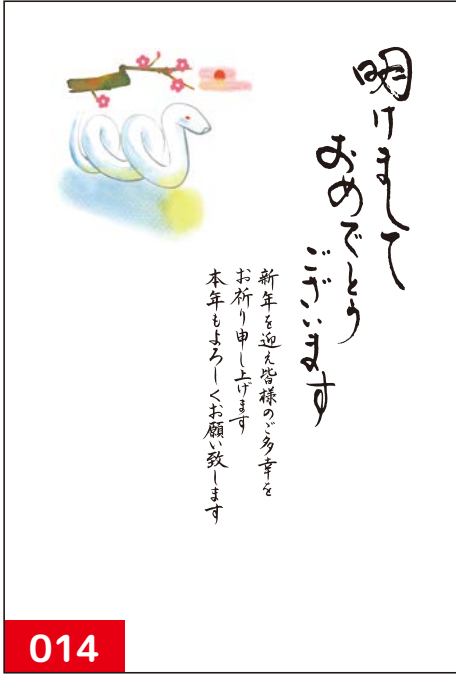 明けまして
おめでとう
ございます
新年を迎え皆様のご多幸を
お祈り申し上げます
本年もよろしくお願い致します
014